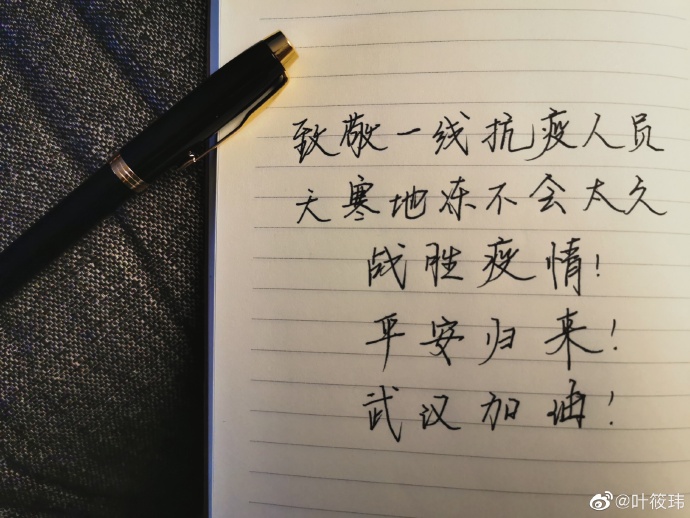 致敬一线抗疫人员
天寒地冻不会太久
战胜疫情!
平安归来!
武汉加油!
@叶筱玮